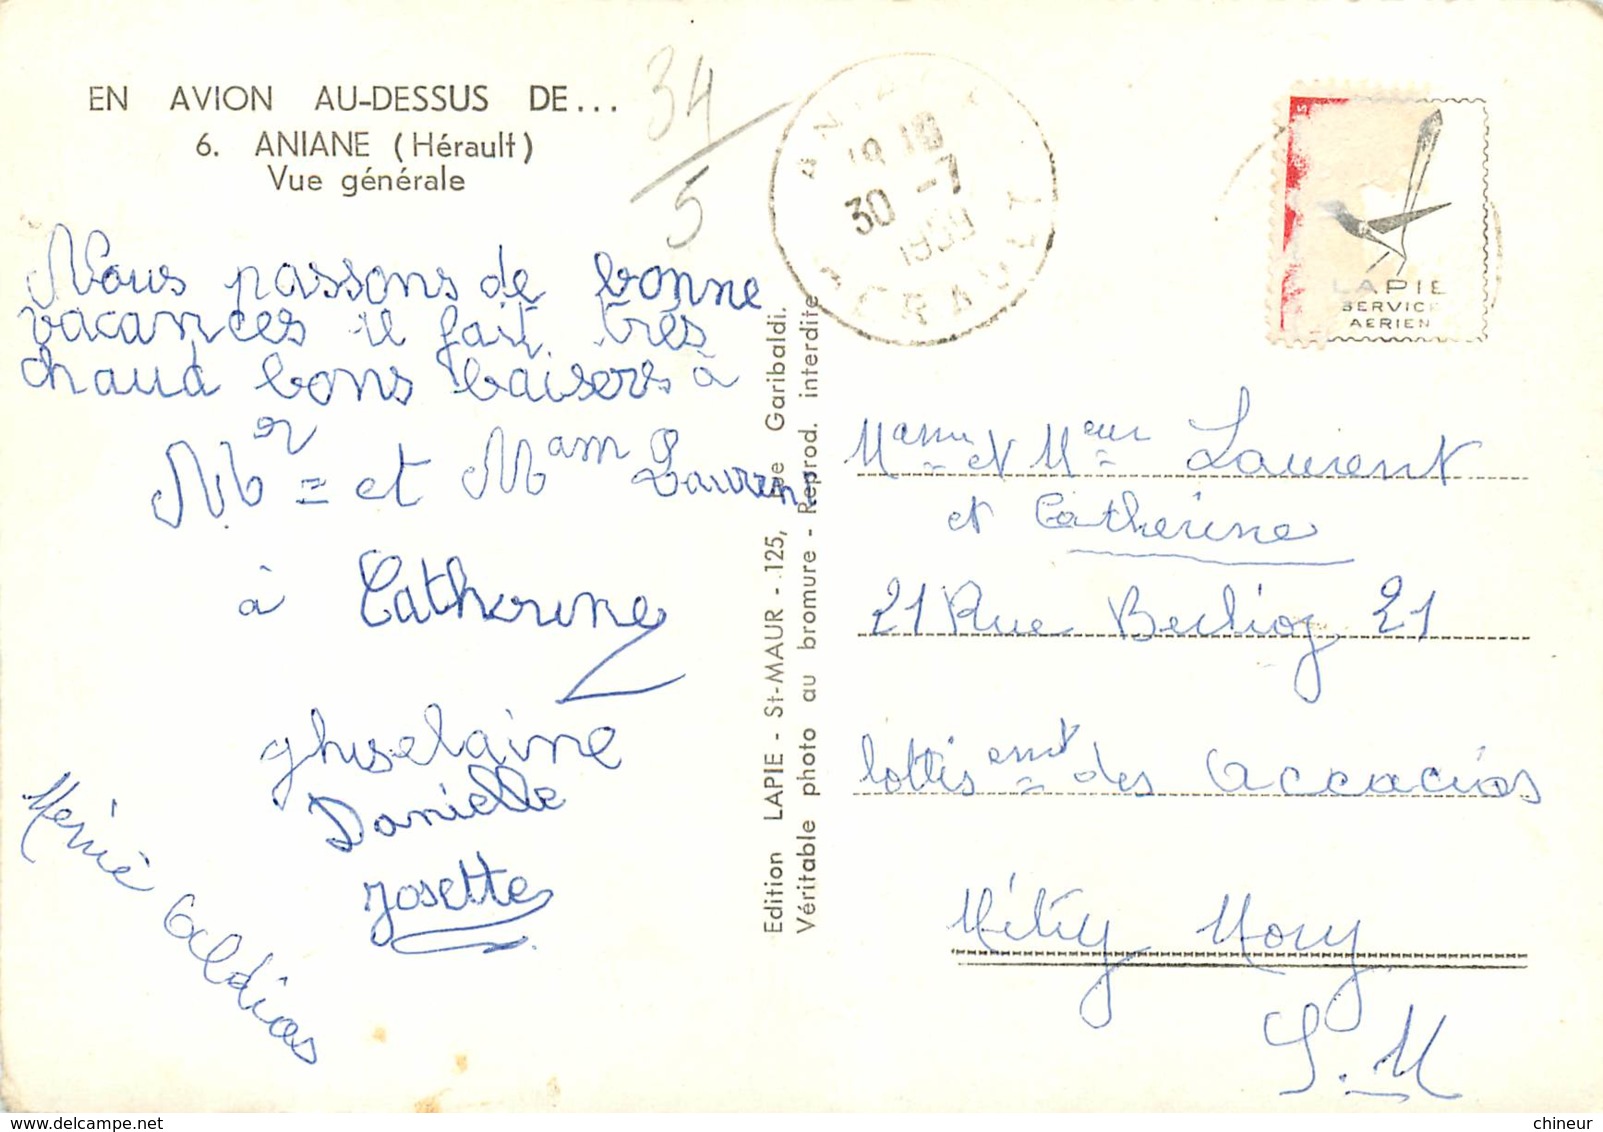 EN AVION AU-DESSUS DE...
6. ANIANE (Hérault)
Vue générale
34
5
Nous passons de bonne
vacances il fait très
chaud bons baisers à
Mr = et Mam Laurent
à Catherine
ghiselaine
Danielle
Josette
Caldias
Edition LAPIE - St-MAUR - 125, Rue Garibaldi.
Véritable photo au bromure - Reprod. interdite
ANIANE
18 H
30 -7
HERAULT
LAPIE
SERVICE
AERIEN
Mam et Meur Laurent
et Catherine
21 Rue Berlioz 21
lottisemt des Accacias
Mitry Mory
S.M
chineur